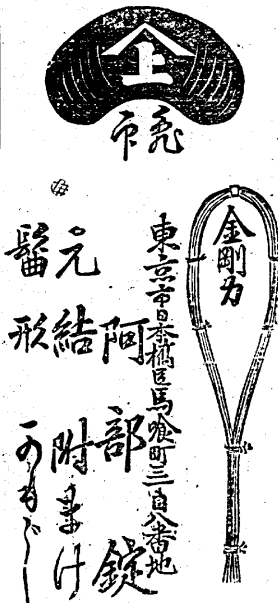 上
印
金剛力
東京市日本橋區馬喰町三目八番地
阿部錠
元結附まけ
髷形